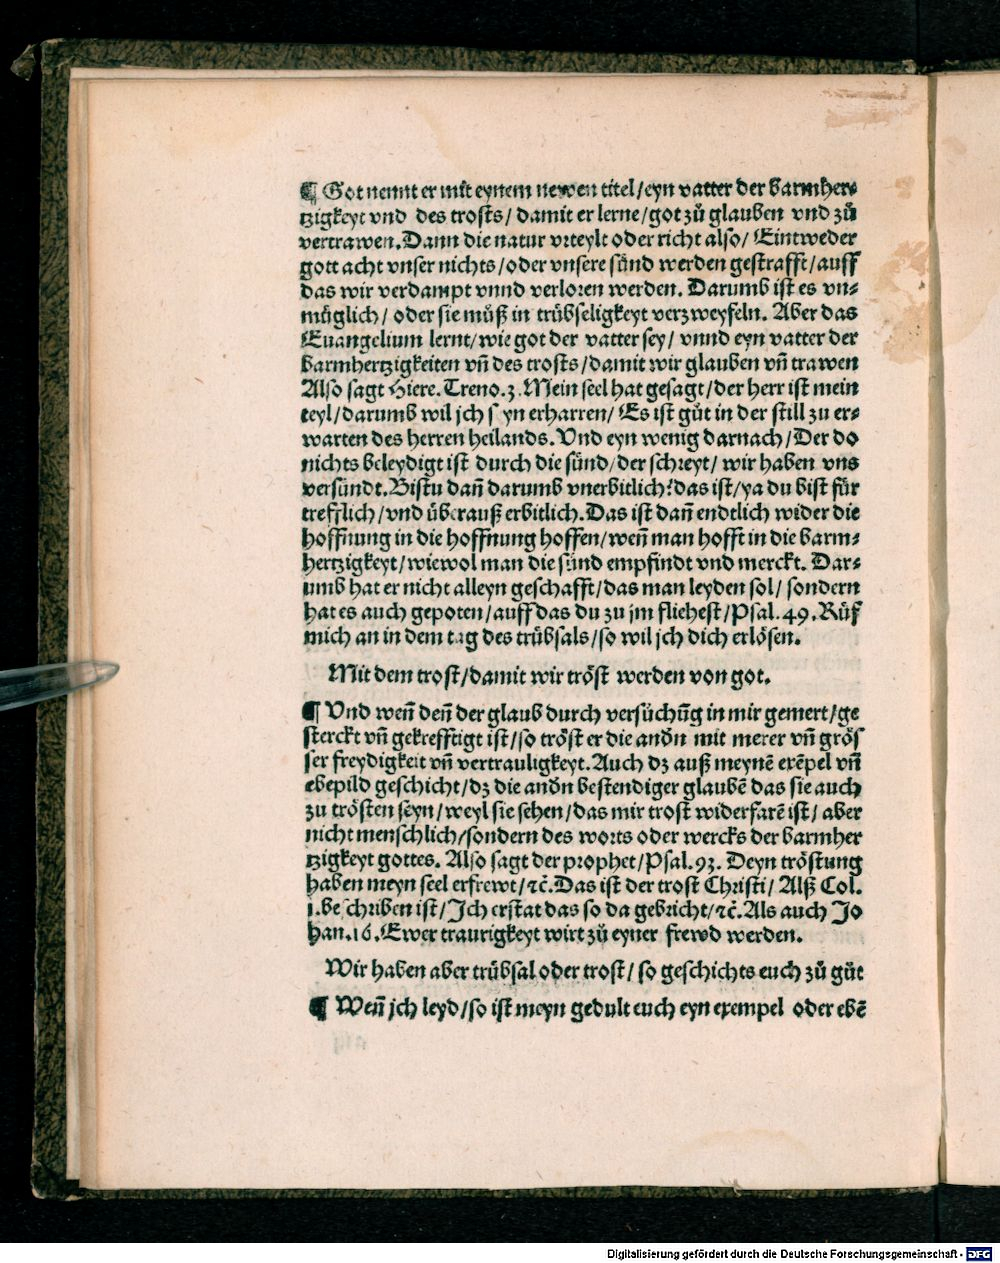 ¶ Got nennt er mit eynem newen titel/eyn vatter der barmher⸗
tzigkeyt vnd des trosts/ damit er lerne/got zů glauben vnd zů
vertrawen. Dann die natur vrteylt oder richt also/ Eintweder
gott acht vnser nichts/oder vnsere sünd werden gestrafft/auff
das wir verdampt vnnd verloren werden. Darumb ist es vn⸗
müglich/ oder sie můß in trübseligkeyt verzweyfeln. Aber das
Euangelium lernt/wie got der vatter sey/ vnnd eyn vatter der
barmhertzigkeiten vn̄ des trosts/damit wir glauben vn̄ trawen
Also sagt Hiere. Treno.3. Mein seel hat gesagt/der herr ist mein
teyl/darumb wil jch s yn erharren/ Es ist gůt in der still zu er⸗
warten des herren heilands. Vnd eyn wenig darnach/Der do
nichts beleydigt ist durch die sünd/der schreyt/ wir haben vns
versündt. Bistu dan̄ darumb vnerbitlich? das ist/ya du bist für
trefflich/vnd überauß erbitlich. Das ist dan̄ endtlich wider die
hoffnung in die hoffnung hoffen/wen̄ man hofft in die barm⸗
hertzigkeyt/wiewol man die sünd empfindt vnd merckt. Dar⸗
umb hat er nicht alleyn geschafft/das man leyden sol/ sondern
hat es auch gepoten/auff das du zu jm fliehest/Psal.49. Růf
mich an in dem tag des trübsals/so wil jch dich erlösen.
Mit dem trost/damit wir tröst werden von got.
¶ Vnd wen̄ den̄ der glaub durch versůchūg in mir gemert/ge
sterckt vn̄ gekrefftigt ist/so tröst er die andn̄ mit merer vn̄ grös
ser freydigkeit vn̄ vertrauligkeyt. Auch dz auß meynē exēpel vn̄
ebepild geschicht/dz die andn̄ bestendiger glaubē das sie auch
zu trösten seyn/weyl sie sehen/das mir trost widerfarē ist/ aber
nicht menschlich/sondern des worts oder wercks der barmher
tzigkeyt gottes. Also sagt der prophet/Psal.93. Deyn tröstung
haben meyn seel erfrewt/ꝛc̄. Das ist der trost Christi/ Alß Col.
1. beschriben ist/Jch erstat das so da gebricht/ꝛc̄. Als auch Jo
han.16. Ewer traurigkeyt wirt zů eyner frewd werden.
Wir haben aber trübsal oder trost/ so geschichts euch zů gůt
¶ Wen̄ jch leyd/so ist meyn gedult euch eyn exempel oder ebē
Digitalisierung gefördert durch die Deutsche Forschungsgemeinschaft - DFG